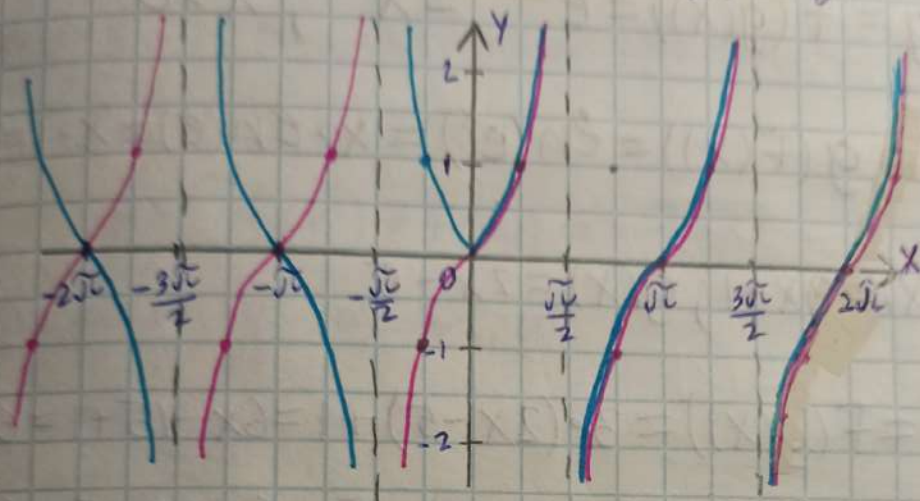 Y
2
1
0
-2π -3π/2 -π -π/2 π/2 π 3π/2 2π X
-1
-2